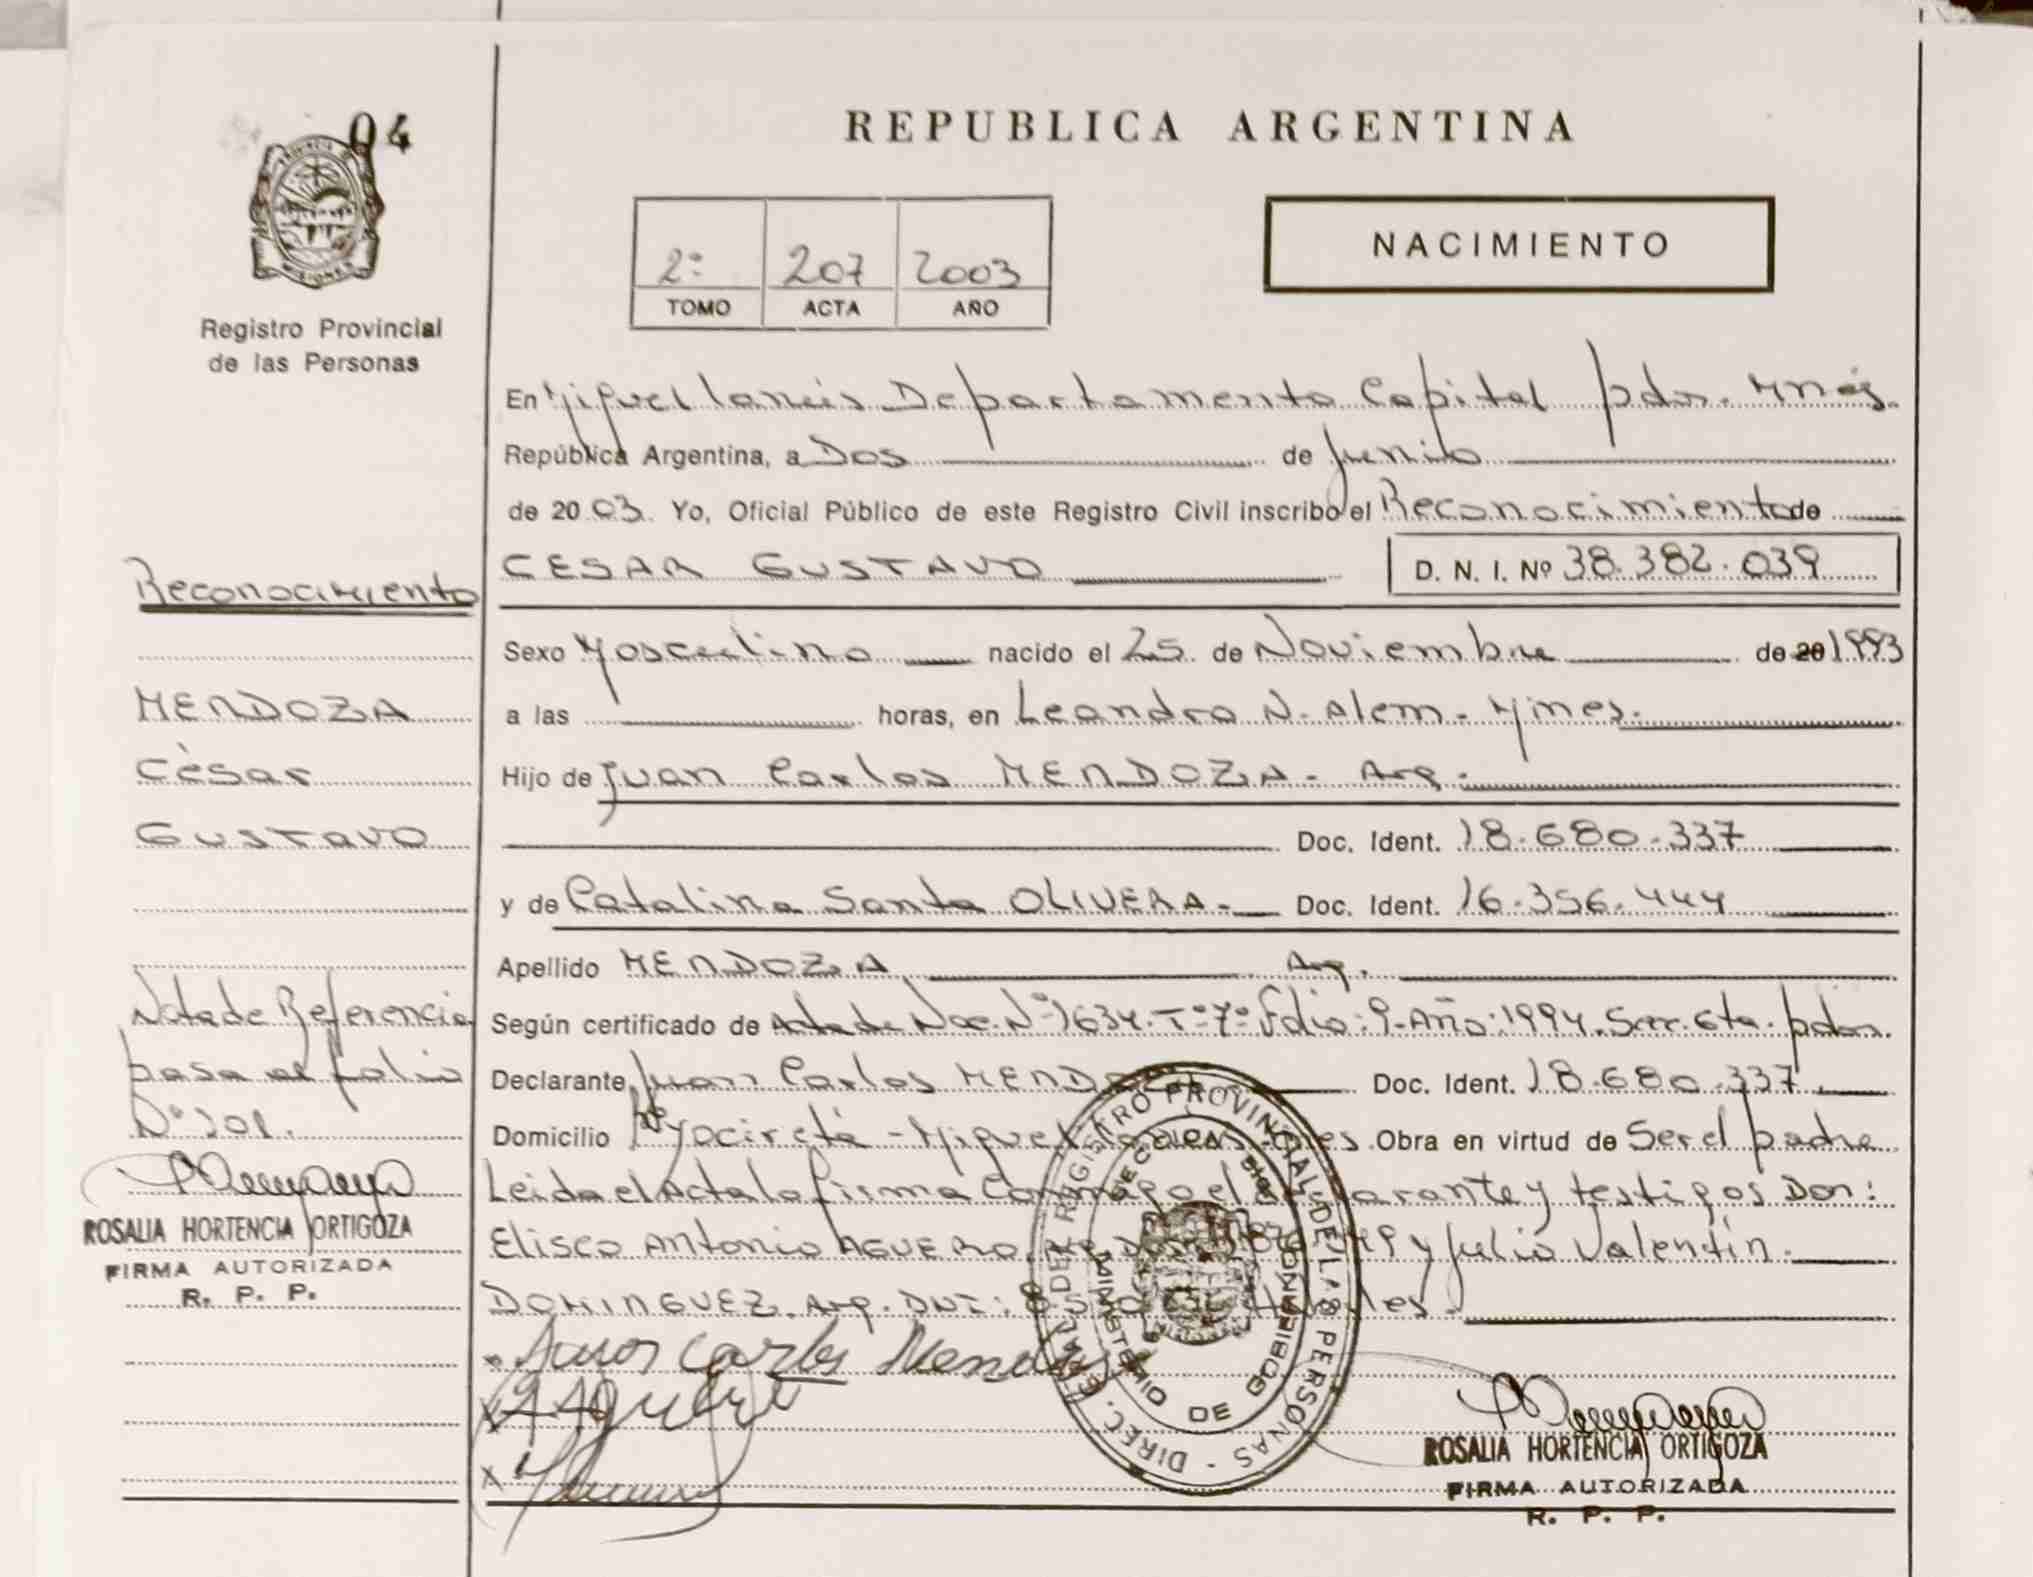 04
PROVINCIA DE
MISIONES
Registro Provincial
de las Personas
REPUBLICA ARGENTINA
2º 207 2003
TOMO ACTA AÑO
NACIMIENTO
En Miguel Lanús Departamento Capital pdor. Mnes.
República Argentina, a Dos de Junio
de 2003. Yo, Oficial Público de este Registro Civil inscribo el Reconocimiento de
CESAR GUSTAVO D. N. I. Nº 38.382.039
Sexo Masculino nacido el 25 de Noviembre de 20 1993
a las horas, en Leandro N. Alem - Mnes.
Hijo de Juan Carlos MENDOZA - Arg.
Doc. Ident. 18.680.337
y de Catalina Santa OLIVERA.- Doc. Ident. 16.356.444
Apellido MENDOZA Arg.
Según certificado de Acta de Nac. Nº 1634. Tº 7º Folio: 9. Año: 1994. Secc. 6ta. pdos.
Declarante Juan Carlos MENDOZA Doc. Ident. 18.680.337
Domicilio Bº Yaciretá - Miguel Lanús Mnes. Obra en virtud de Ser el padre
Leida el Acta la firma Conmigo el declarante y testigos Don:
Eliseo Antonio AGUERO. Arg. y Julio Valentín.
DOMINGUEZ. Arg. DNI:
Juan Carlos Mendoza
Reconocimiento
MENDOZA
César
GUSTAVO
Nota de Referencia
pasa al folio
Nº 201.
ROSALIA HORTENCIA ORTIGOZA
FIRMA AUTORIZADA
R. P. P.
DIREC. GRAL. DEL REGISTRO PROVINCIAL DE LAS PERSONAS -
MINISTERIO DE GOBIERNO
ROSALIA HORTENCIA ORTIGOZA
FIRMA AUTORIZADA
R. P. P.